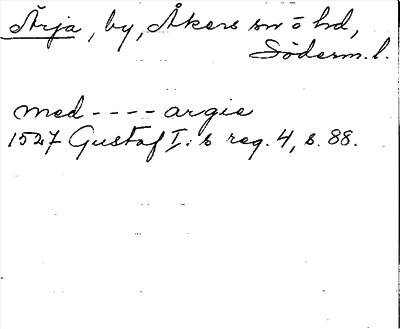 Ärja, by, Åkers sn o hd,
Söderm. l.
med - - - - argie
1527 Gustaf I:s reg. 4, s. 88.